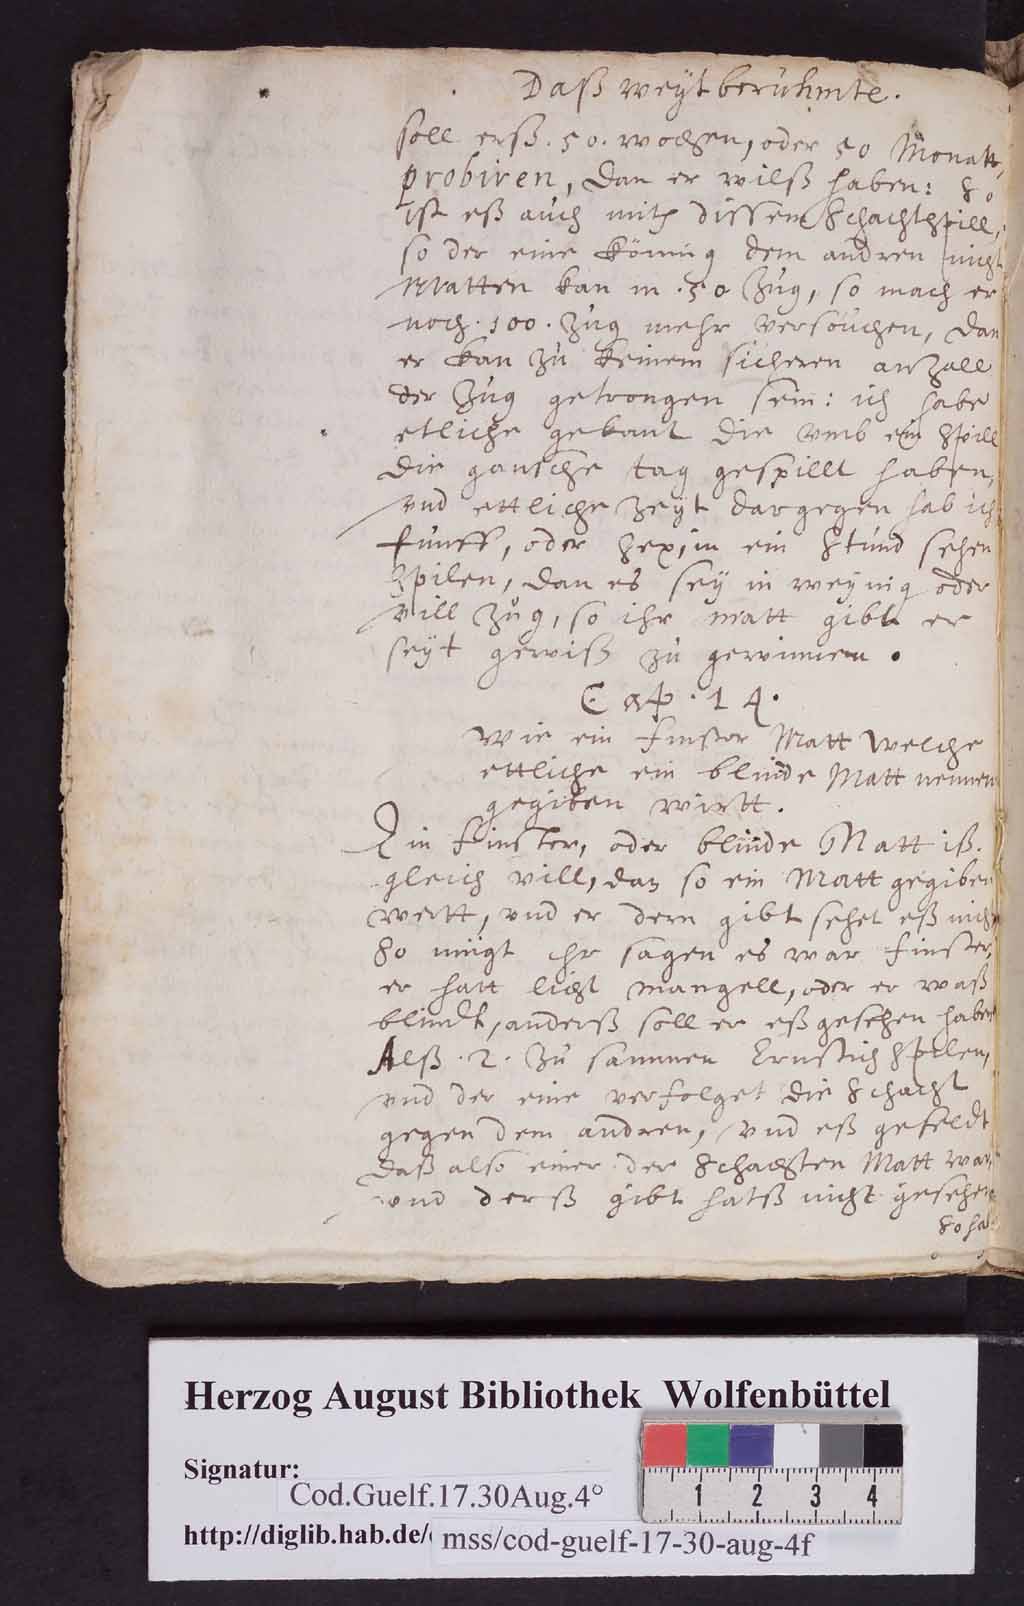 Daß weÿt berühmte.
soll erß. 50. wochen, oder 50 Monatt,
probiren, dan er wilß haben: So
ist eß auch mitt dissem Schachtspill,
so der eine Könnig dem andren nicht
Matten kan in .50 Zúg, so mach er
noch .100. Zúg mehr versoúchen, dan
er kan zú keinem sicheren anzall
der Zúg getrongen sein: ich habe
etliche gekant die vmb ein Spill
die gantsche tag gespillt haben,
vnd ettliche Zeÿt dargegen hab ich
fúnff, oder Sex, in ein Stúnd sehen
Spilen, dan es seÿ in weÿnig oder
vill Zúg, so ihr matt gibt er
seÿt gewiß zú gewinnen.
Cap. 14.
Wie ein finster Matt welche
ettliche ein blinde Matt nennen
gegiben wirtt.
Ein finster, oder blinde Matt iß.
gleich vill, dan so ein Matt gegiben
wertt, vnd er dern gibt sehet eß nicht
So múgt ihr sagen es war finster,
er hatt licht mangell, oder er waß
blindt, anderß soll er eß gesehen haben
Alß .2. zú sammen Ernstich Spilen,
vnd der eine verfolget die Schacht
gegen dem andren, vnd eß gefeldt
daß also einer der Schachten Matt war,
vnd derß gibt hatß nicht gesehen
So ha
Herzog August Bibliothek Wolfenbüttel
Signatur:
Cod.Guelf.17.30Aug.4°
http://diglib.hab.de/ mss/cod-guelf-17-30-aug-4f
1 2 3 4